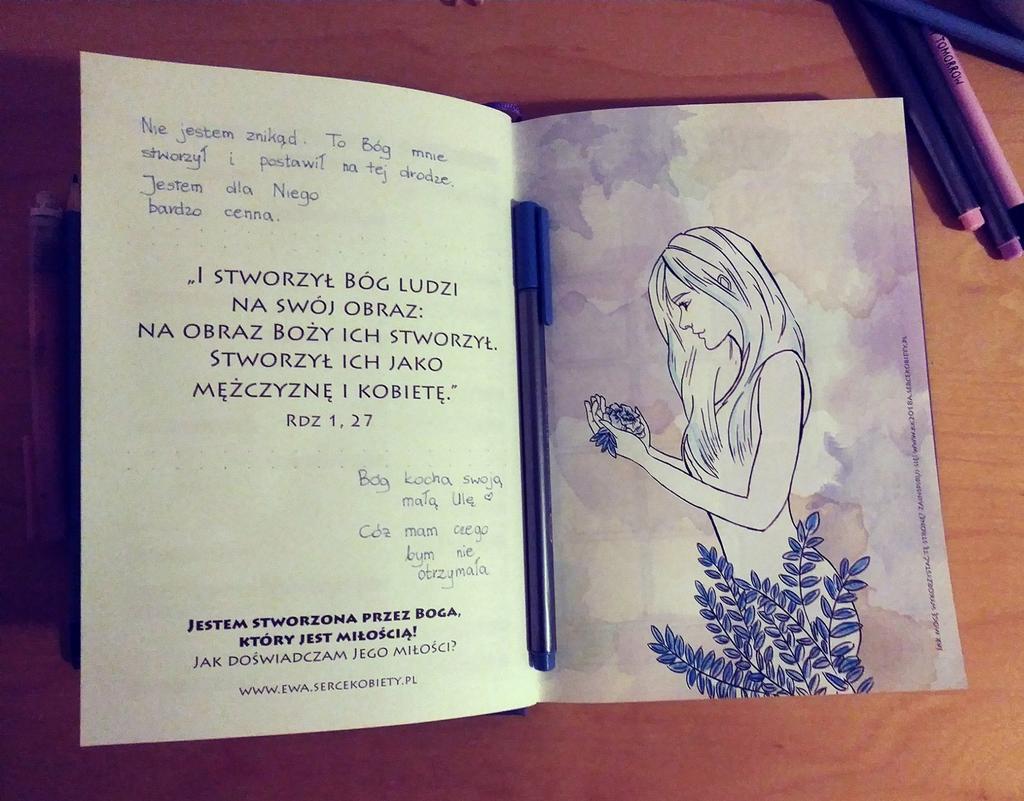 Nie jestem znikąd. To Bóg mnie
stworzył i postawił na tej drodze.
Jestem dla Niego
bardzo cenna.
„I STWORZYŁ BÓG LUDZI
NA SWÓJ OBRAZ:
NA OBRAZ BOŻY ICH STWORZYŁ.
STWORZYŁ ICH JAKO
MĘŻCZYZNĘ I KOBIETĘ.”
RDZ 1, 27
Bóg kocha swoją
małą Ulę
Cóż mam czego
bym nie
otrzymała
JESTEM STWORZONA PRZEZ BOGA,
KTÓRY JEST MIŁOŚCIĄ!
JAK DOŚWIADCZAM JEGO MIŁOŚCI?
WWW.EWA.SERCEKOBIETY.PL
JAK MOGĘ WYKORZYSTAĆ TĘ STRONĘ? ZAINSPIRUJ SIĘ:
TOMORROW